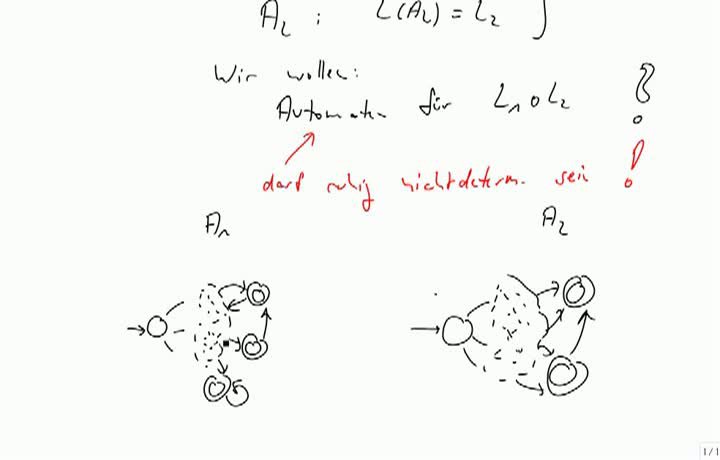 A₂ : L(A₂) = L₂ }
Wir wollen:
Automaten für L₁ ∘ L₂ ?
darf ruhig nichtdeterm. sein !
A₁ A₂
1/1